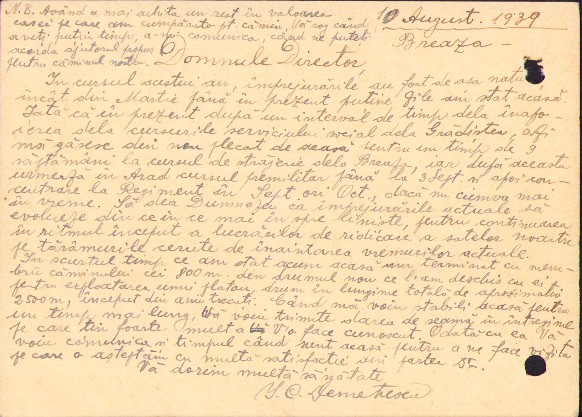 N.B. Având a mai achita un rest în valoarea
casei pe care am cumpărat-o pt. cămin, Vă rog când
aveți puțin timp, a-mi comunica, când ne puteți
acorda ajutorul propus
pentru căminul nostru.
10 August. 1939
Breaza
Domnule Director
În cursul acestui an, împrejurările au fost de așa natură,
încât din Martie până în prezent puține zile am stat acasă.
Iată că în prezent după un interval de timp dela înapo-
ierea dela cursurile serviciului social dela Grădiștea, aflu
mă găsesc din nou plecat de acasă pentru un timp de 3
săptămâni la cursul de străjerie dela Breaza, iar după aceasta
urmează în Arad cursul premilitar până la 3 Sept. și apoi con-
centrare la Regiment în Sept. ori Oct., dacă nu cumva mai
în vreme. Să dea Dumnezeu că împrejurările actuale să
evolueze din ce în ce mai în spre liniște, pentru continuarea
în ritmul început a lucrărilor de ridicare a satelor noastre
pe tărâmurile cerute de înaintarea vremurilor actuale.
În scurtul timp ce am stat acum acasă am terminat cu mem-
brii căminului cei 800 m. den drumul nou ce l-am deschis cu ei
pentru exploatarea unui platou, drum în lungime totală de aproximativ
2500 m, început din anii trecuți. Când mă voiu stabili acasă pentru
un timp mai lung, Vă voiu trimite darea de seamă în întregime
pe care țin foarte mult a V-o face cunoscut. Odată cu ea Vă
voiu comunica și timpul când sunt acasă pentru a ne face vizita
pe care o așteptăm cu multă satisfacție din partea Dv.
Vă dorim multă sănătate
I. C. Demetrescu